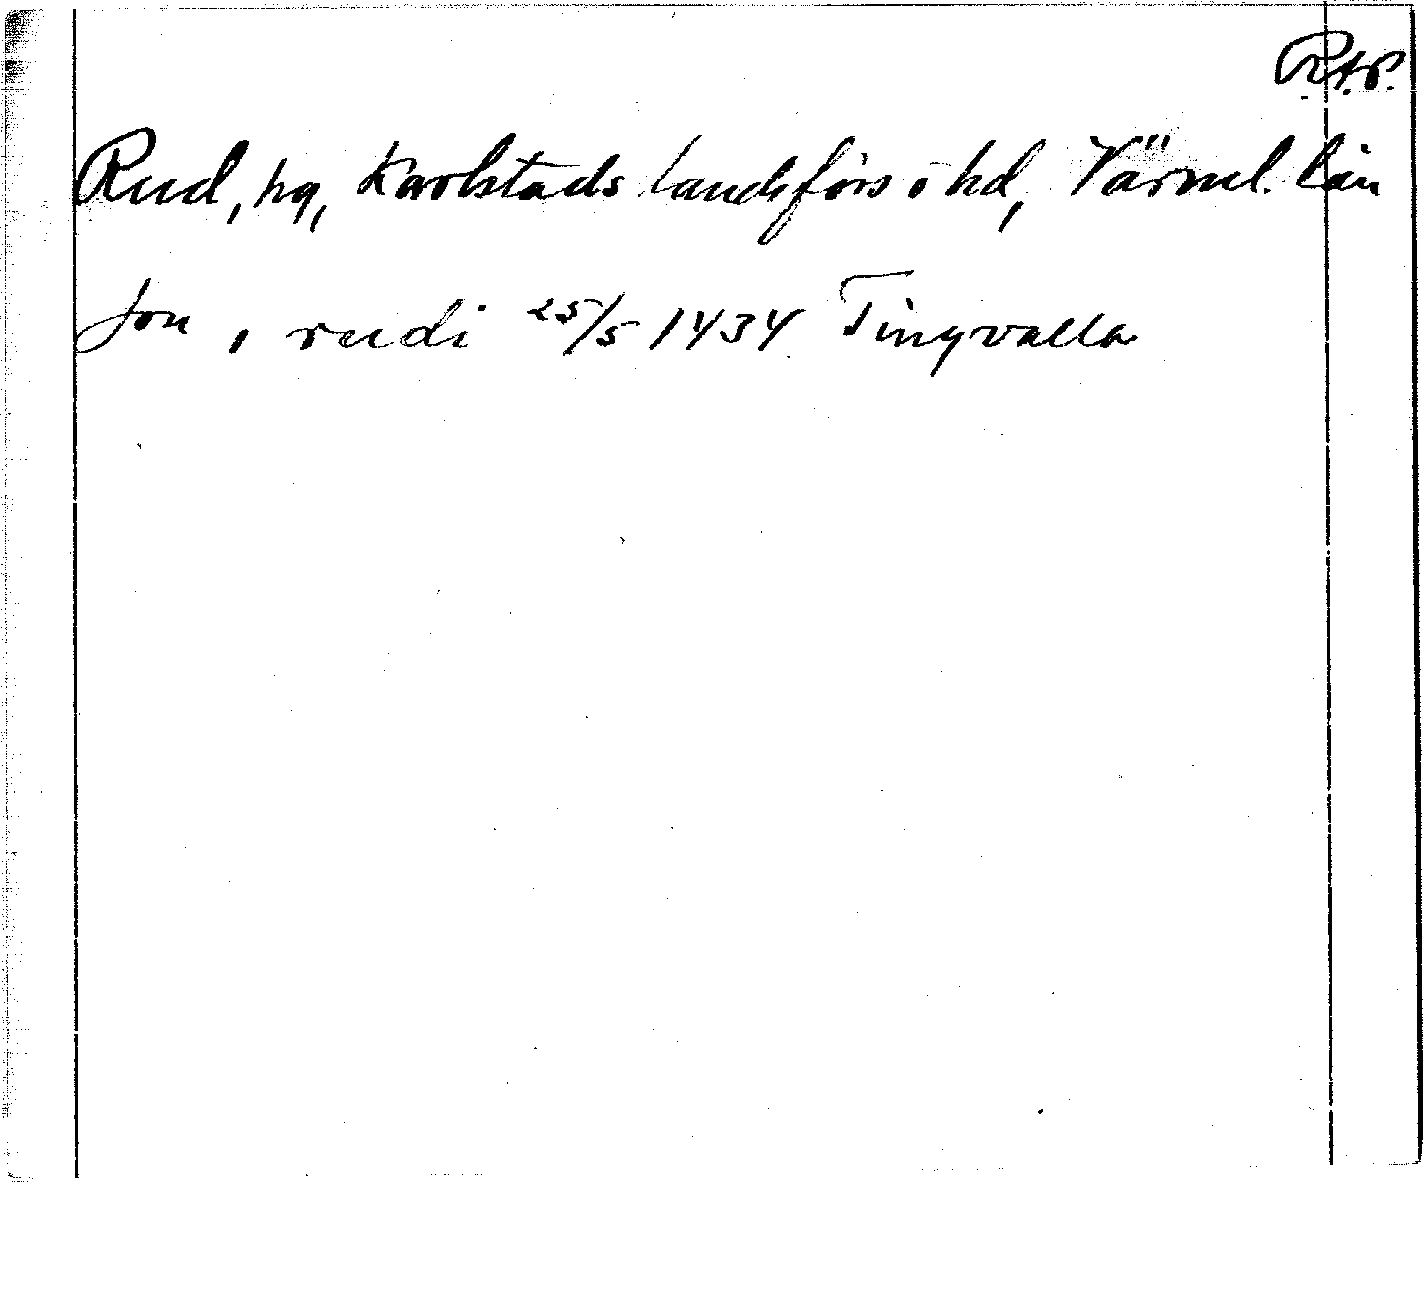 R.A.P.
Rud, hg, Karlstads landsförs o hd, Värml. län
Jon, rudi 25/5 1434 Tingvalla